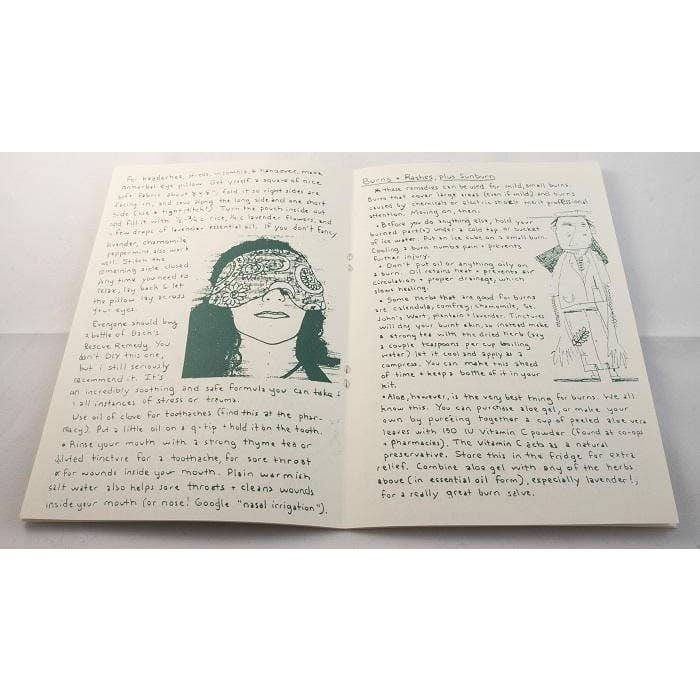 For headaches, stress, insomnia, & hangover, make
an herbal eye pillow. Get yrself a square of nice
soft fabric about 8"x 8", fold it so right sides are
facing in, and sew along the long side and one short
side (use a tight stitch). Turn the pouch inside out
and fill it with rice, lavender flowers, and
drops of lavender essential oil. If you don't fancy
lavender, chamomile,
peppermint also work
well. Stitch the
remaining side closed
Any time you need to
relax, lay back & let
the pillow lay across
your eyes.
Everyone should buy
a bottle of Bach's
Rescue Remedy. You
can't DIY this one,
but i still seriously
recommend it. It's
an incredibly soothing and safe formula you can take
all instances of stress or trauma.
Use oil of clove for toothaches (find this at the phar-
macy). Put a little oil on a q-tip + hold it on the tooth.
• Rinse your mouth with a strong thyme tea or
diluted tincture for a toothache, for sore throat
& for wounds inside your mouth. Plain warmish
salt water also helps sore throats + cleans wounds
inside your mouth (or nose! Google "nasal irrigation").
Burns + Rashes, plus Sunburn
these remedies can be used for mild, small burns.
Burns that cover large areas (even if mild) and burns
caused by chemicals or electric shock merit professional
attention. Moving on, then:
• Before you do anything else, hold your
burned part(s) under a cold tap or bucket
of ice water. Put an ice cube on a small burn.
Cooling a burn numbs pain + prevents
further injury.
• Don't put oil or anything oily on
a burn. Oil retains heat + prevents air
circulation + proper drainage, which
slows healing.
• Some herbs that are good for burns
are calendula, comfrey, chamomile, St.
John's Wort, plantain + lavender. Tinctures
will dry your burnt skin, so instead make
a strong tea with the dried herb (say
a couple teaspoons per cup boiling
water) let it cool and apply as a
compress. You can make this ahead
of time + keep a bottle of it in your
kit.
• Aloe, however, is the very best thing for burns. We all
know this. You can purchase aloe gel, or make your
own by pureeing together a cup of peeled aloe vera
leaves with 150 IU vitamin C powder (found at co-ops
+ pharmacies). The vitamin C acts as a natural
preservative. Store this in the fridge for extra
relief. Combine aloe gel with any of the herbs
above (in essential oil form), especially lavender!,
for a really great burn salve.